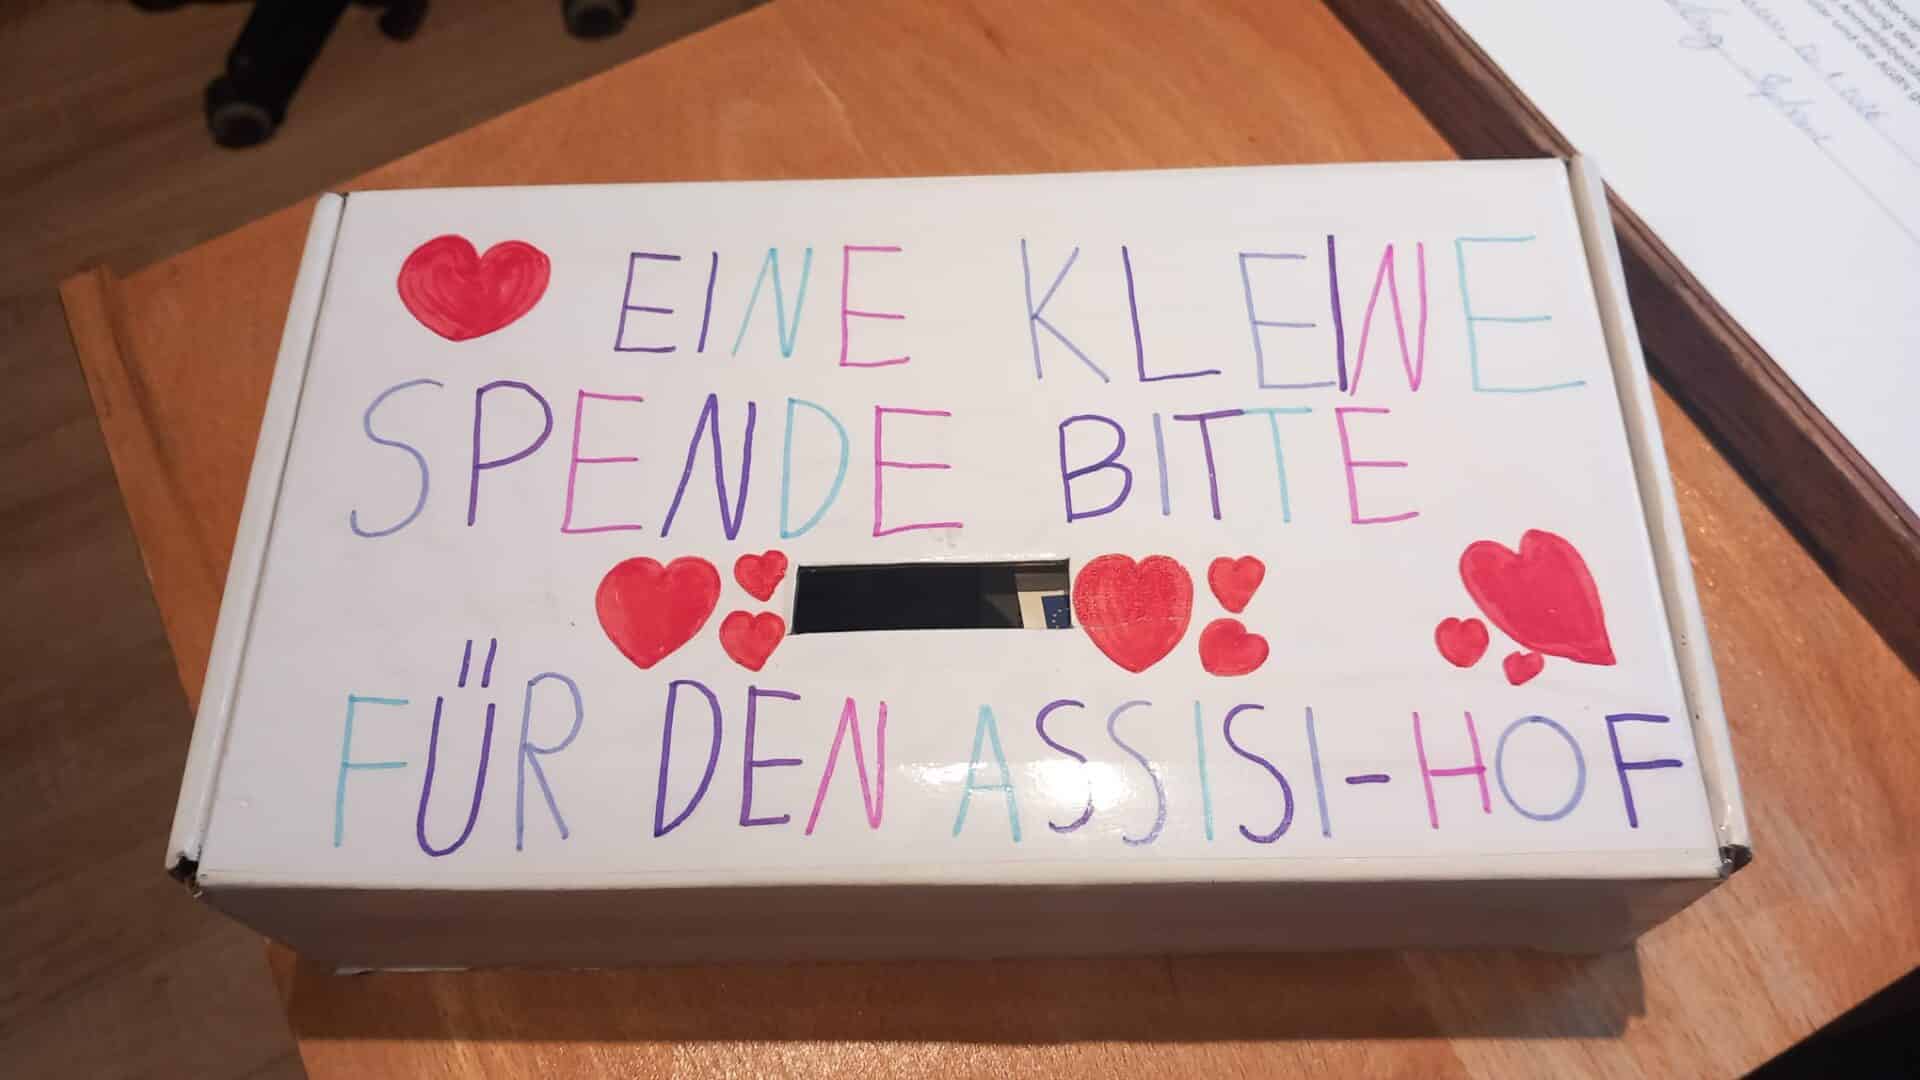 EINE KLEINE
SPENDE BITTE
FÜR DEN ASSISI-HOF